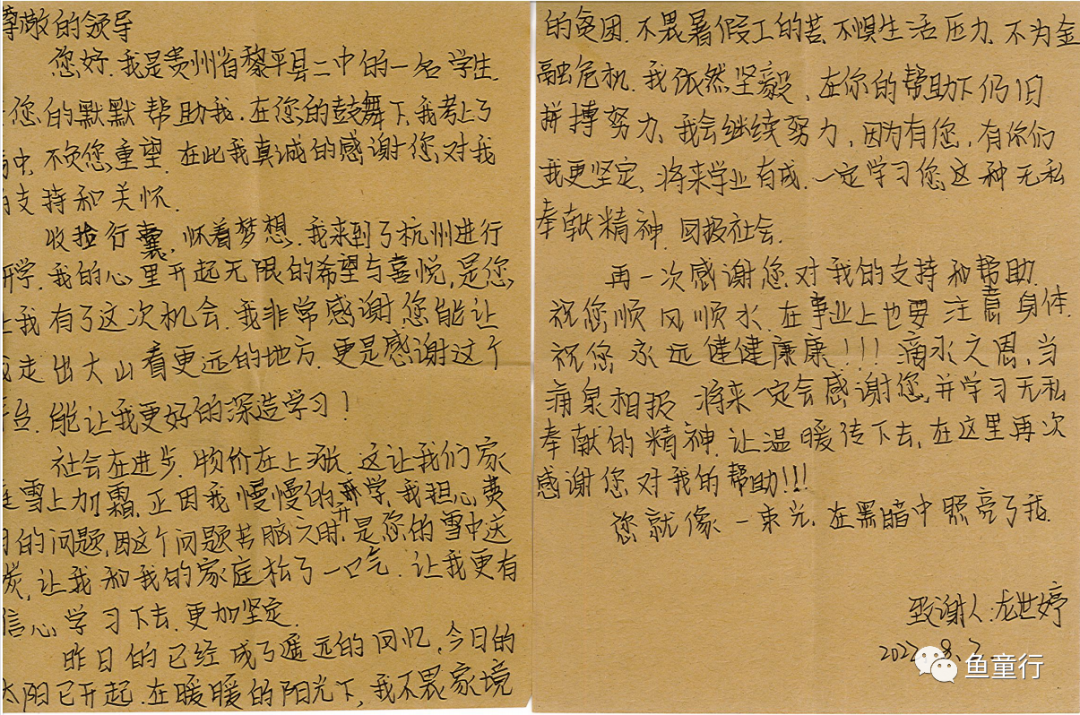 尊敬的领导
您好.我是贵州省黎平县二中的一名学生.
您的默默帮助我.在您的鼓舞下,我考上了
高中,不负您重望.在此我真诚的感谢您,对我
的支持和关怀.
收捡行囊,怀着梦想.我来到了杭州进行
研学.我的心里开起无限的希望与喜悦,是您,
让我有了这次机会.我非常感谢您能让
我走出大山看更远的地方.更是感谢这个
平台.能让我更好的深造学习!
社会在进步.物价在上涨.这让我们家
庭雪上加霜.正因我慢慢的升学,我担心费
用的问题,因这个问题苦脑之时,是您的雪中送
炭,让我和我的家庭松了一口气.让我更有
信心学习下去.更加坚定.
昨日的已经成了遥远的回忆,今日的
太阳已开起.在暖暖的阳光下,我不畏家境
的贫困.不畏暑假工的苦.不惧生活压力.不为金
融危机.我依然坚毅,在你的帮助下仍旧
拼搏努力,我会继续努力,因为有您,有你们
我更坚定,将来学业有成.一定学习您这种无私
奉献精神.回报社会.
再一次感谢您对我的支持和帮助.
祝您顺风顺水.在事业上也要注意身体.
祝您永远健健康康!!!滴水之恩,当
涌泉相报.将来一定会感谢您,并学习无私
奉献的精神.让温暖传下去,在这里再次
感谢您对我的帮助!!!
您就像一束光.在黑暗中照亮了我.
致谢人:龙世婷
8.2
鱼童行